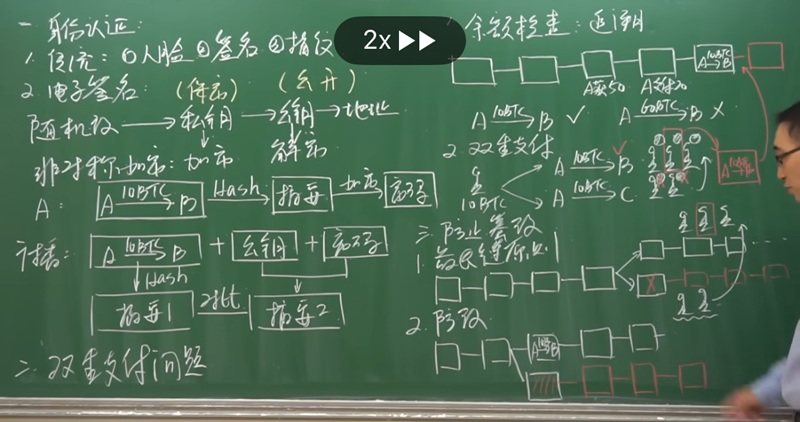 一 身份认证:
1. 传统: ①人脸 ②签名 ③指纹
2. 电子签名: (保密) (公开)
随机数 → 私钥 → 公钥 → 地址
非对称加密: 加密 解密
A: A 10BTC→ B Hash→ 摘要 加密→ 密码
广播: A 10BTC→ B + 公钥 + 密码
Hash
摘要1 对比 摘要2
二 双重支付问题
2x
余额检查: 追溯
A获50 A支20 A 10BTC→ B
A 10BTC→ B ✓ A 60BTC→ B ×
2. 双重支付
10BTC
A 10BTC→ B ✓
A 10BTC→ C
三 防止篡改
1. 最长链原则
2. 防改